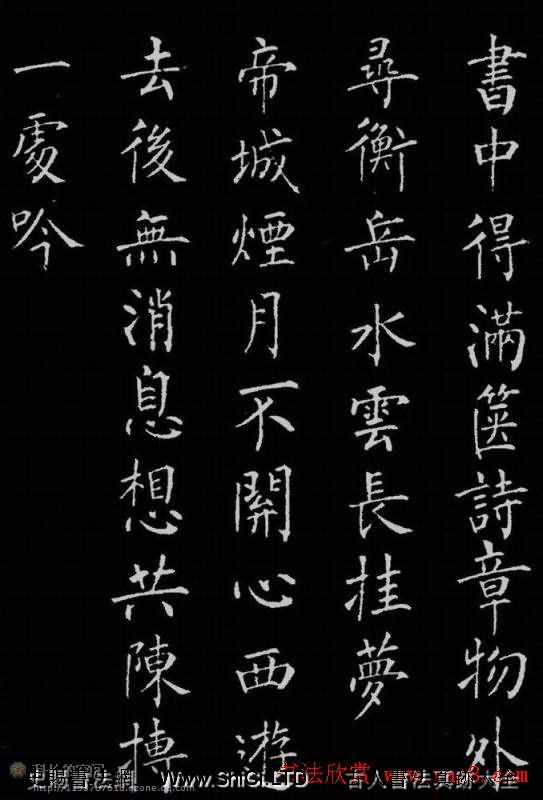 書中得滿篋詩章物外
尋衡岳水雲長挂夢
帝城煙月不關心西游
去後無消息想共陳摶
一處吟
書法欣賞 www.yac8.com
史賜書法網 www.ShiSi.LTD 古人書法真跡大全